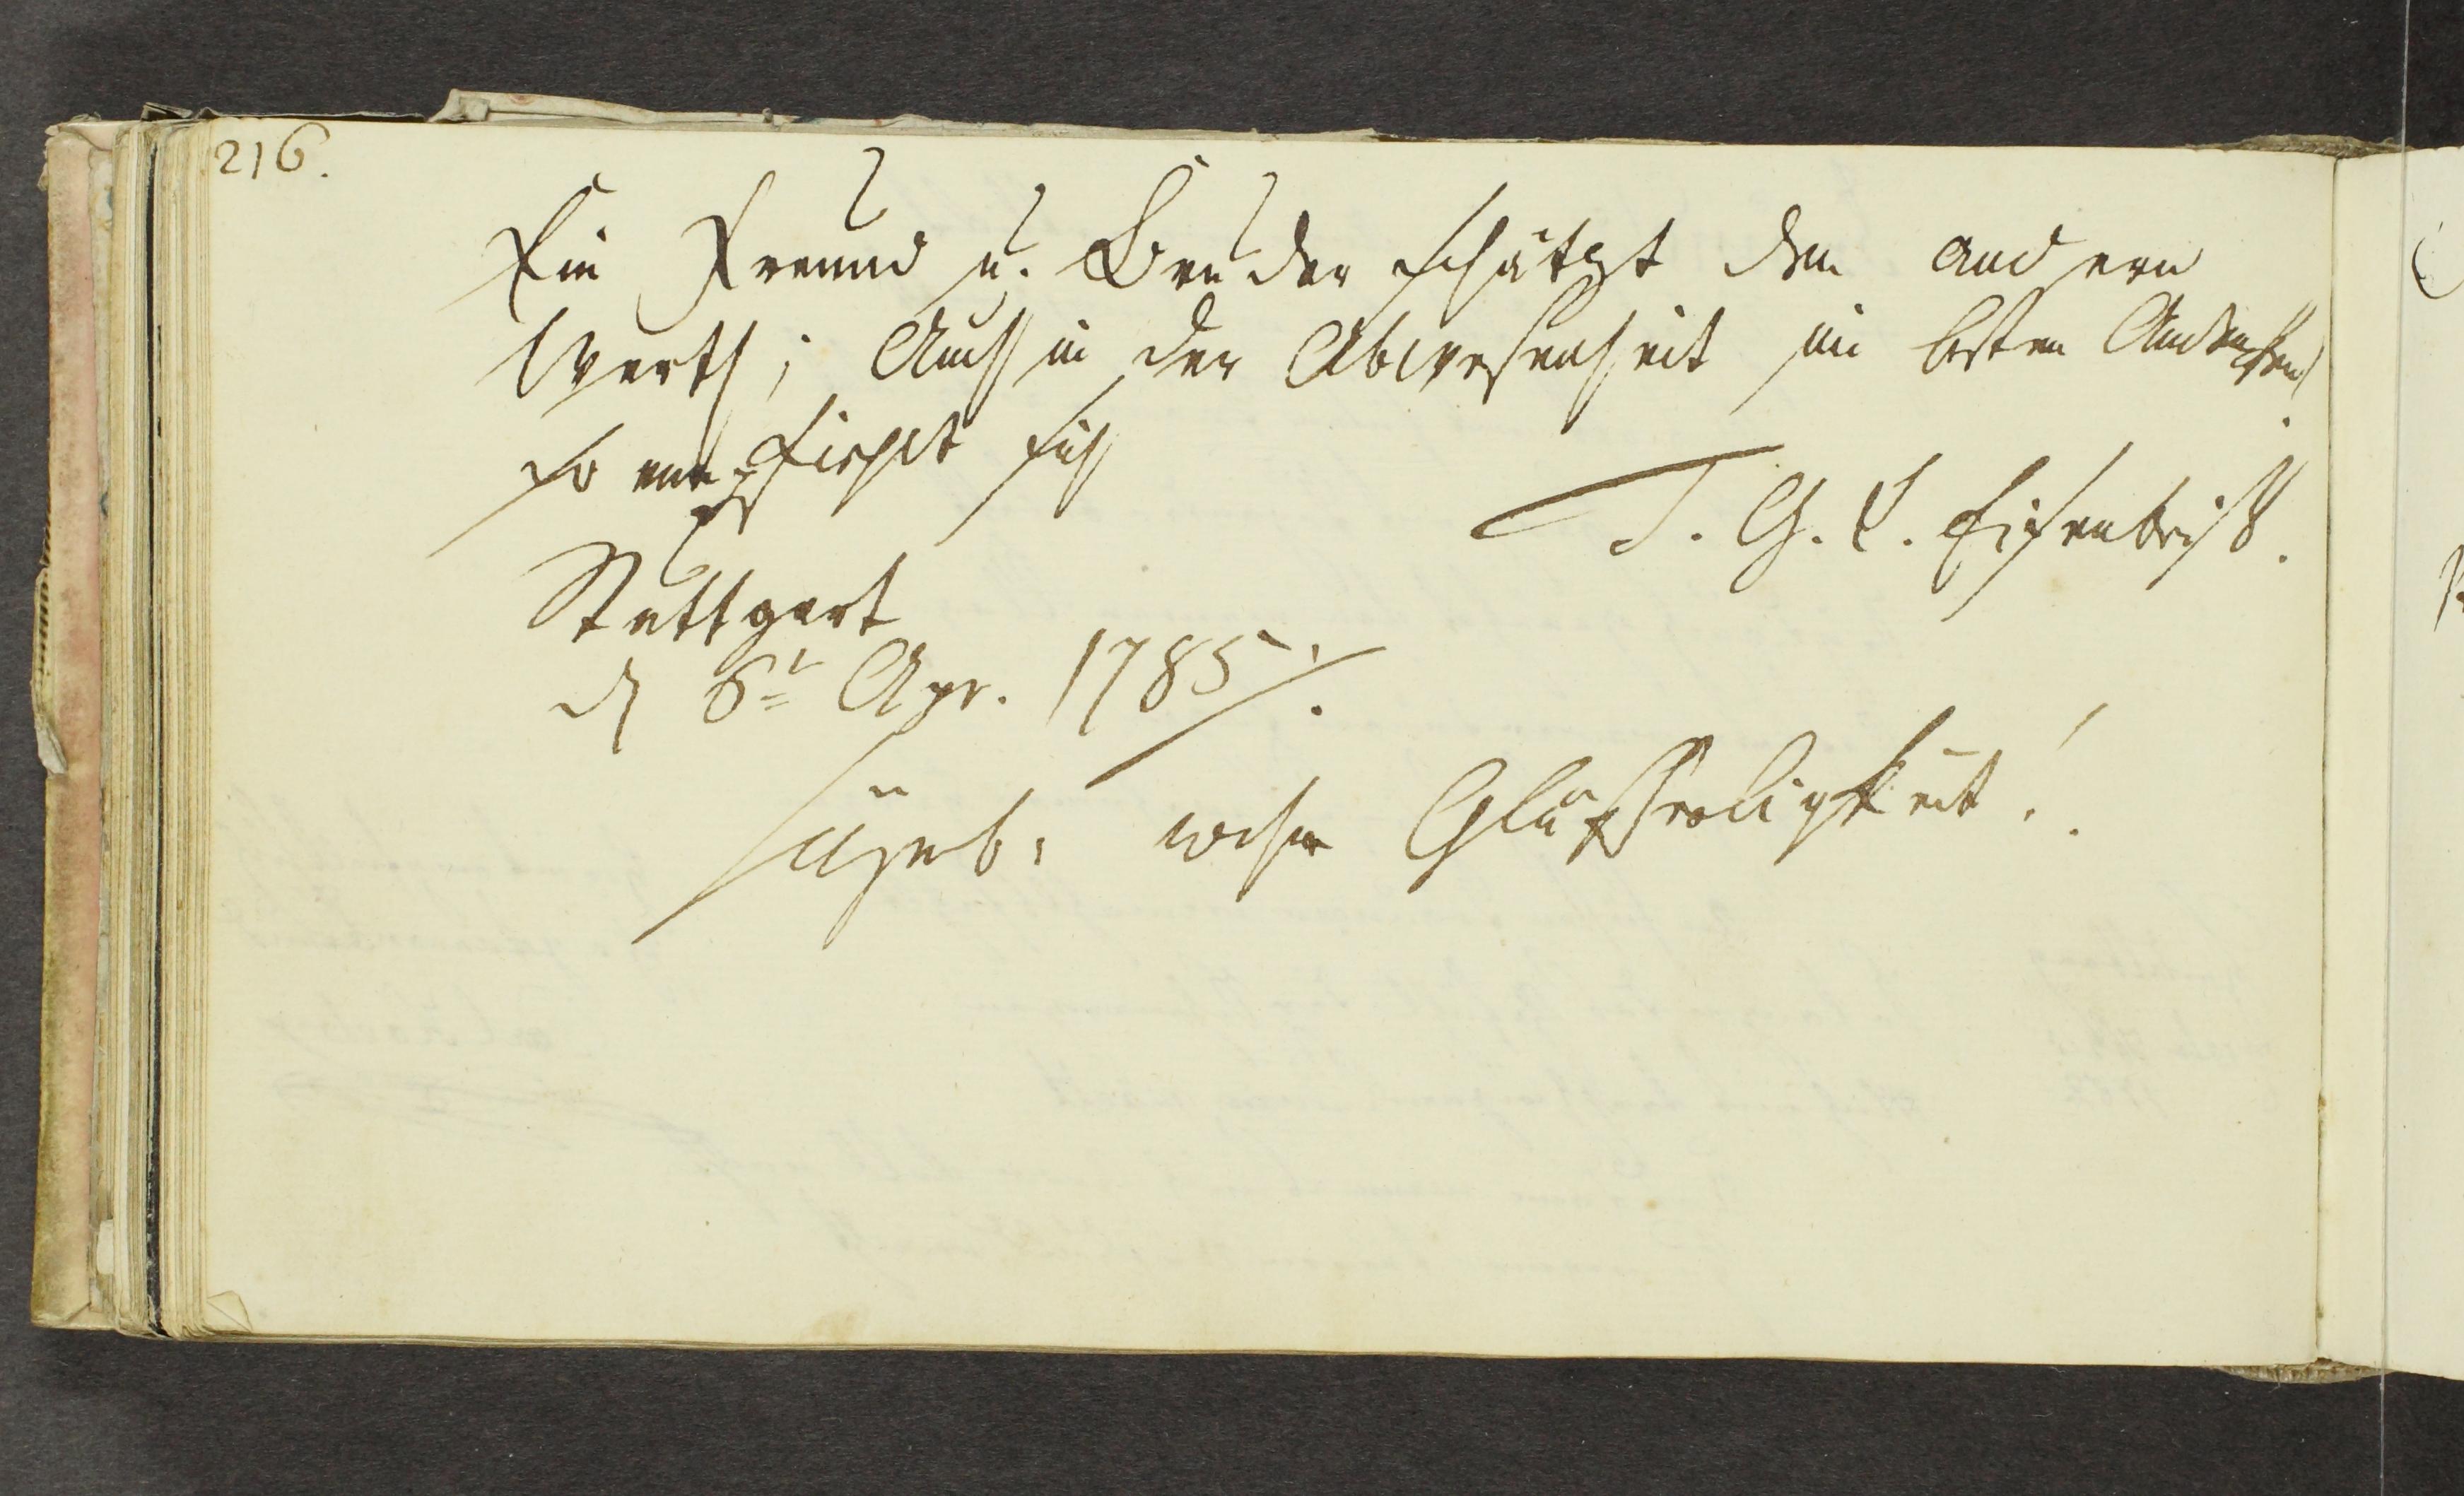 216.
Ein Freund u. Bruder schätzt den andern
Werth; Auch in der Abwesenheit im besten Andenken.
so empfiehlt sich
T. G. L. Eisenbeiß.
Stuttgart
d 6t Apr. 1785
wahre Glükseeligkeit!